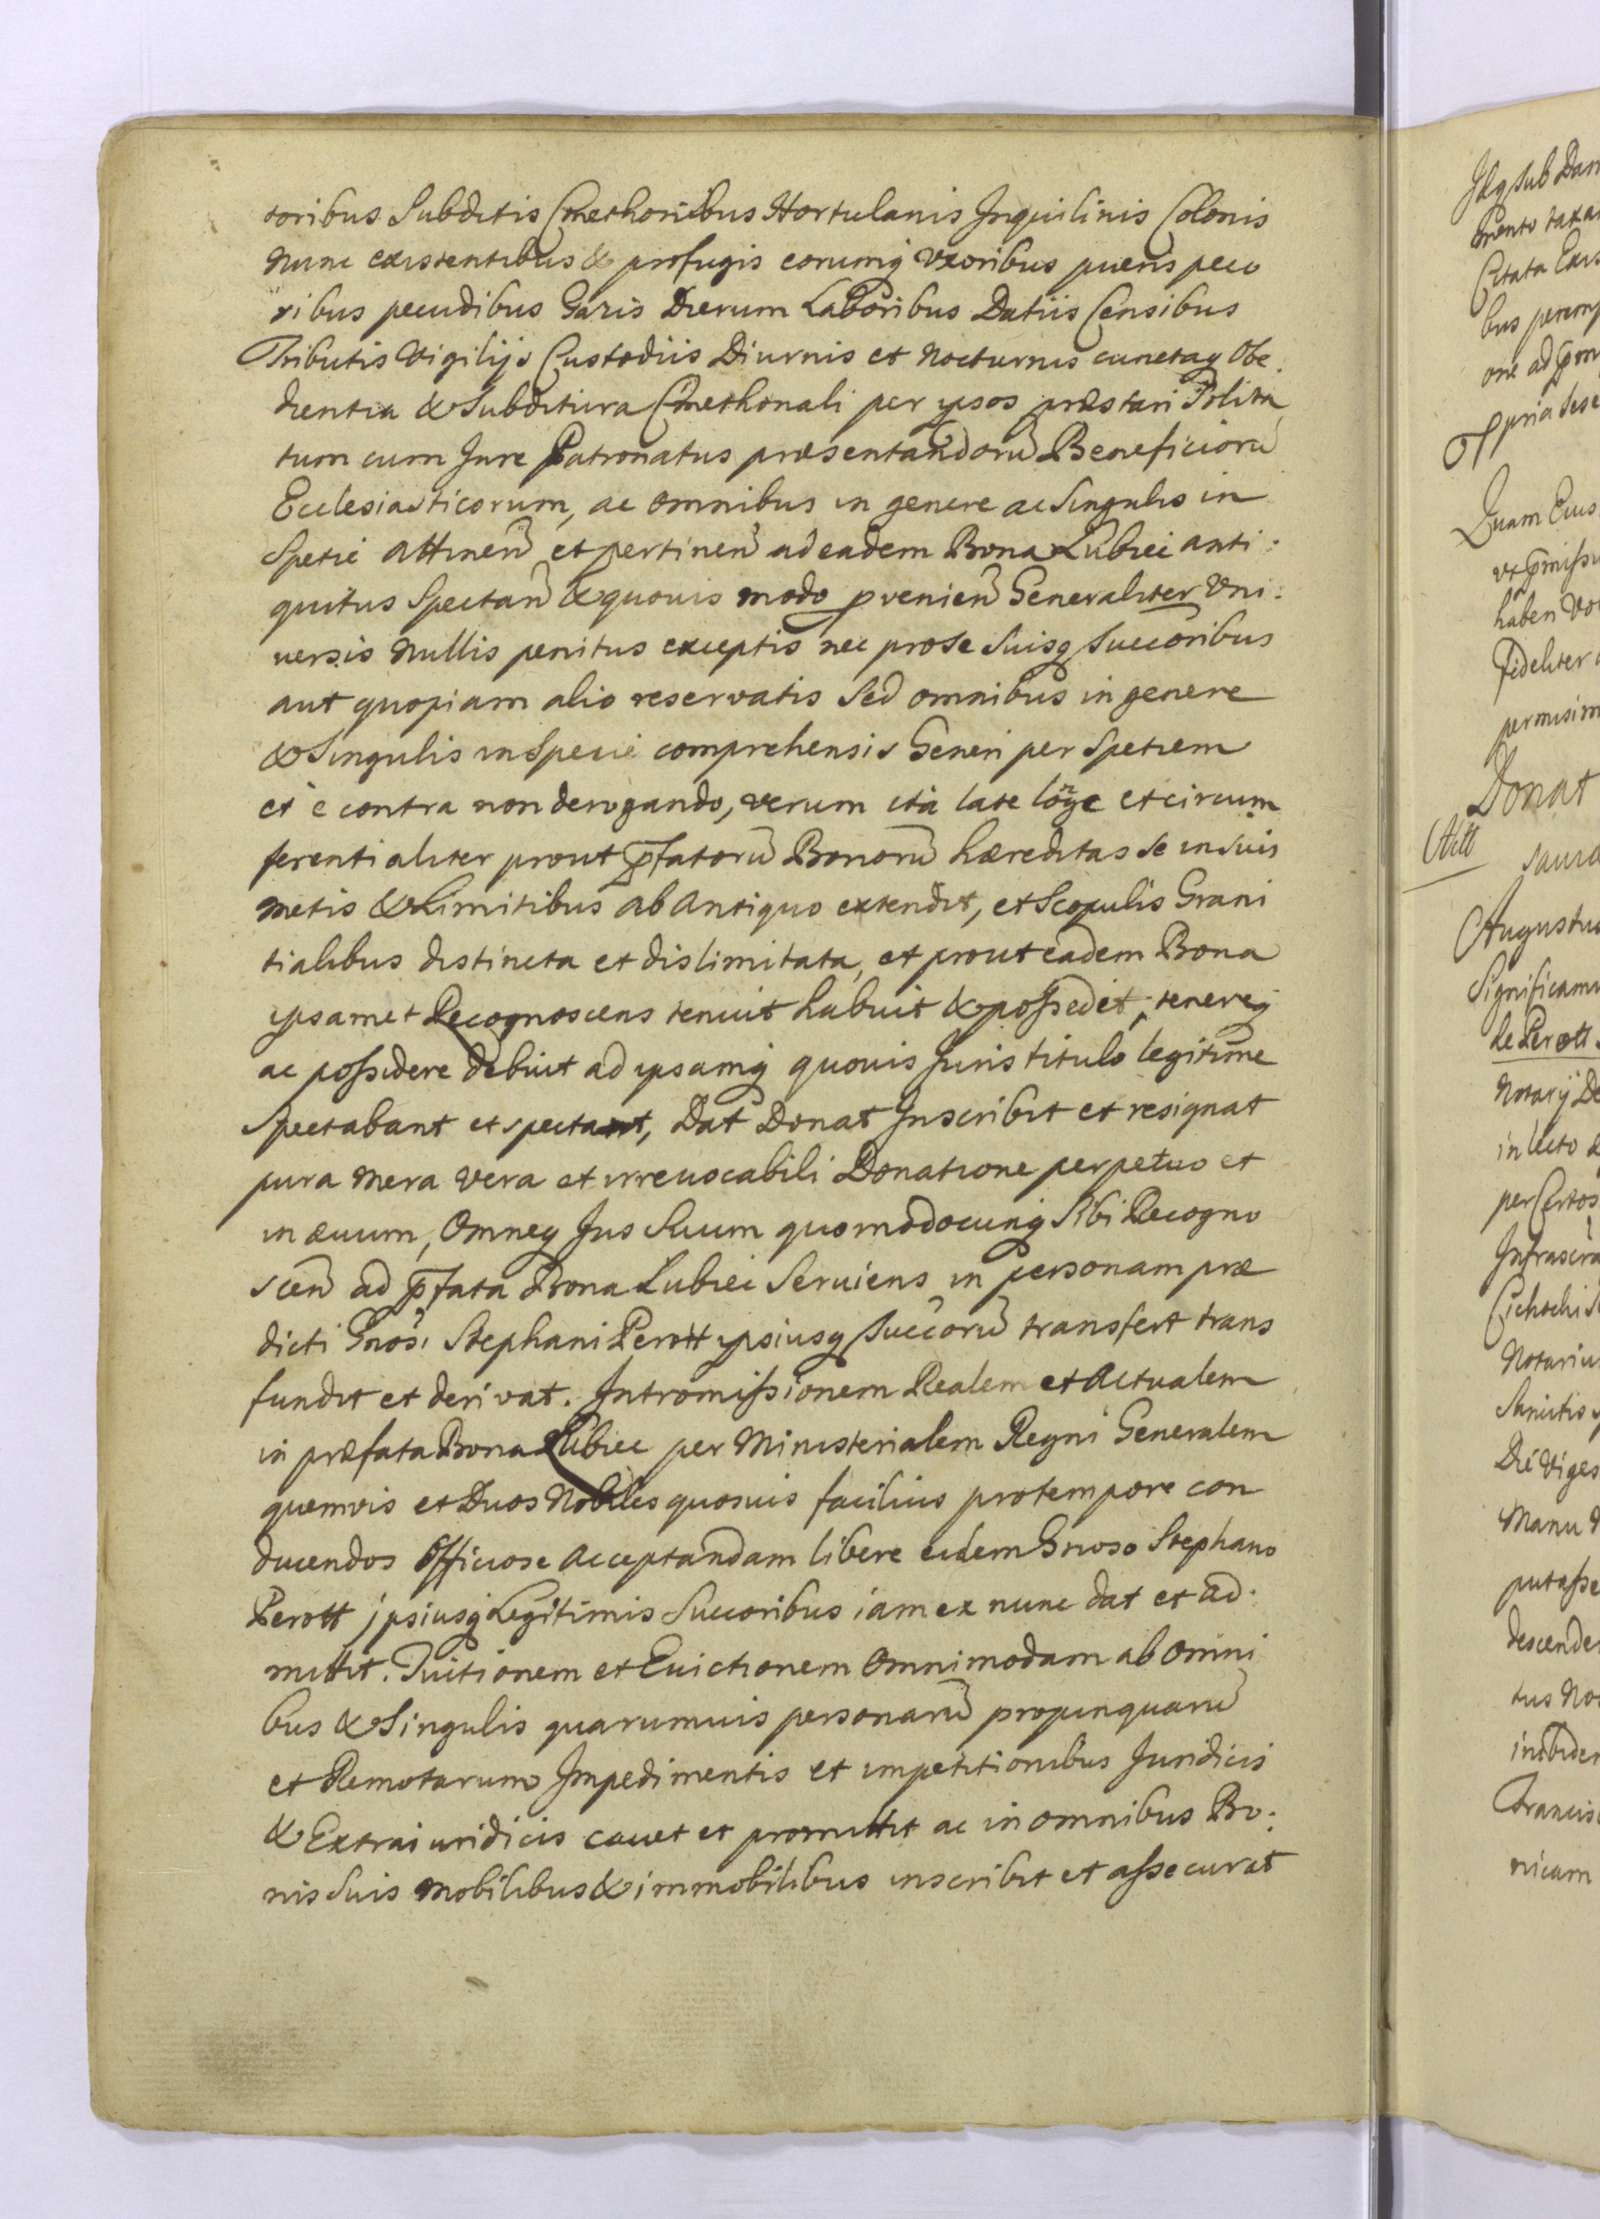 toribus Subditis Cmethonibus Hortulanis Inquilinis Colonis
nunc existentibus & profugis eorumq Uxoribus pueris peco
ribus pecudibus Gazis Dierum Laboribus Datiis Censibus
Tributis Vigilijs Custodiis Diurnis et Nocturnis cunctaq Obe.
dientia & Subditiva Cmethonali per ipsos præstari Solita
tum cum Jure Patronatus præsentandorū Beneficiorū
Ecclesiasticorum, ac omnibus in genere ac Singulis in
Spetie attinen̄ et pertinen̄ ad eadem Bona Lubiec anti:
quitus Spectan̄ & quouis modo p̱venien̄ Generaliter Uni:
uersis Nullis penitus exceptis nec pro se Suisq Succōribus
aut quopiam alio reservatis Sed omnibus in genere
& Singulis in Specie comprehensis Generi per Spetiem
et è contra non derogando, verum ità late longe et circum
ferentialiter prout p̄fatorū Bonorū hæreditas se in suis
metis & Limitibus ab Antiquo extendit, et Scopulis Grani
tialibus distincta et dislimitata, et prout eadem Bona
ipsamet Recognoscens tenuit habuit & possedit, tenereq
ac possidere debuit ad ipsamq quouis Juris titulo legitime
Spectabant et spectant, Dat Donat Inscribit et resignat
pura mera vera et irreuocabili Donatione perpetuo et
in æuum, Omneq Jus Suum quomodocunq Sibi Recogno
scen̄ ad p̄fata Bona Lubiec Seruiens in personam præ
dicti Gnosi Stephani Perott ipsiusq Succorū transfert trans
fundit et derivat. Intromissionem Realem et Actualem
in præfata Bona Lubiec per Ministerialem Regni Generalem
quemvis et Duos Nobiles quosuis facilius protempore con
ducendos Officiose Acceptandam libere eidem Gnoso Stephano
Perott ipsiusq Legitimis Succoribus iam ex nunc dat et ad.
mittit. Tuitionem et Euictionem Omnimodam ab Omni
bus & Singulis quarumuis personarū propinquarū
et Remotarum Impedimentis et impetitionibus Juridicis
& Extraiuridicis cauet et promittit ac in omnibus Bo:
nis Suis mobilibus & immobilibus inscribit et assecurat
Donat
Augustus
Significamu
de Perott
Notarij De
in lecto
per Certos
Infrascri
Notarius
Manu
putasse
descende
tus Nos
Francis
nicam
Quam Eius
haben
Fideliter
permisim